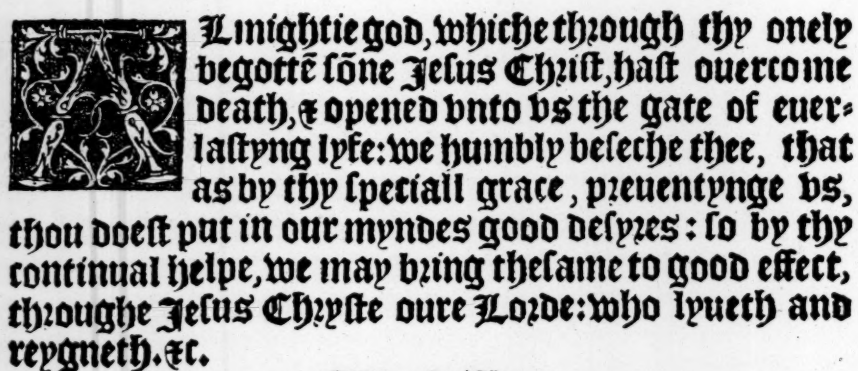 ALmightie god, whiche through thy onely
begottẽ sõne Jesus Christ, hast ouercome
death, & opened vnto vs the gate of euer-
lastyng lyfe: we humbly beseche thee, that
as by thy speciall grace, preuentynge vs,
thou doest put in our myndes good desyres: so by thy
continual helpe, we may bring thesame to good effect,
throughe Jesus Chryste oure Lorde: who lyueth and
reygneth. &c.